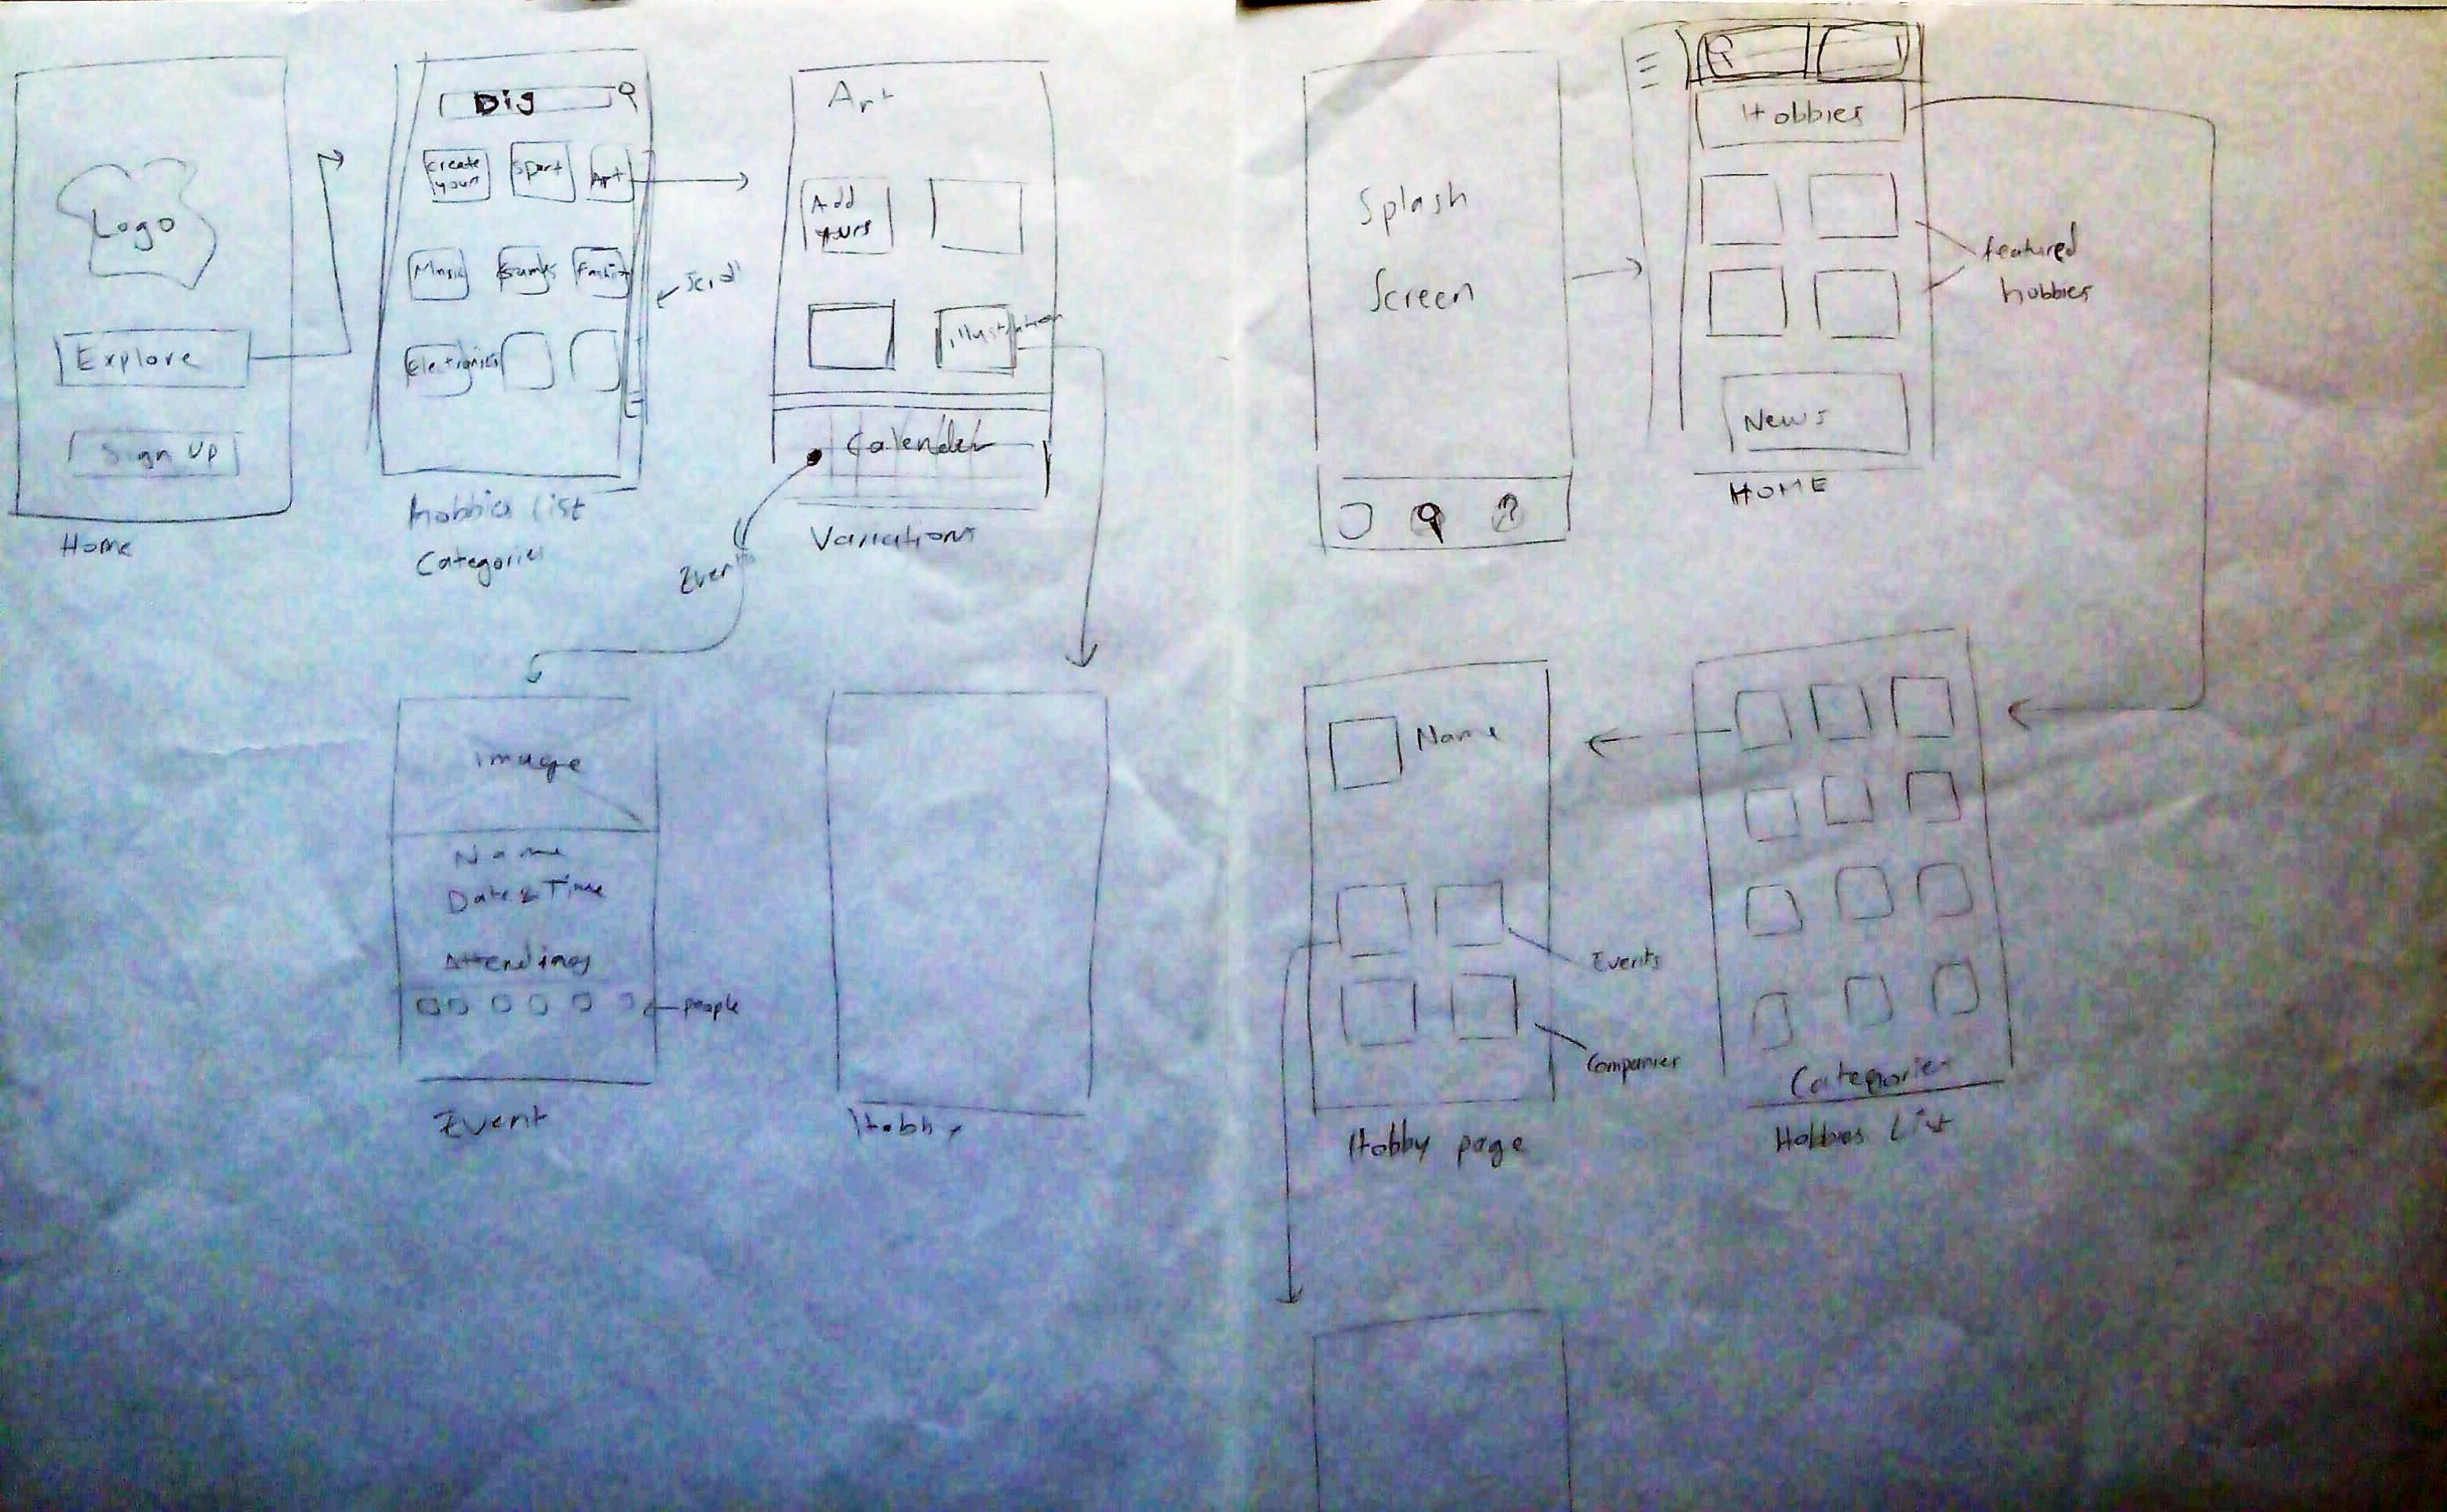 Logo
Explore
Sign UP
Home
Dig
create
yours
Sport
Art
Music
Games
Fashion
Eletronics
Scroll
hobbies list
Categories
Art
Add
yours
illustration
Calender
Variations
Events
Image
Name
Date & Time
Attending
people
Event
Hobby
Splash
Screen
Hobbies
featured
hobbies
News
HOME
Name
Events
Companies
Hobby page
Categories
Hobbies List